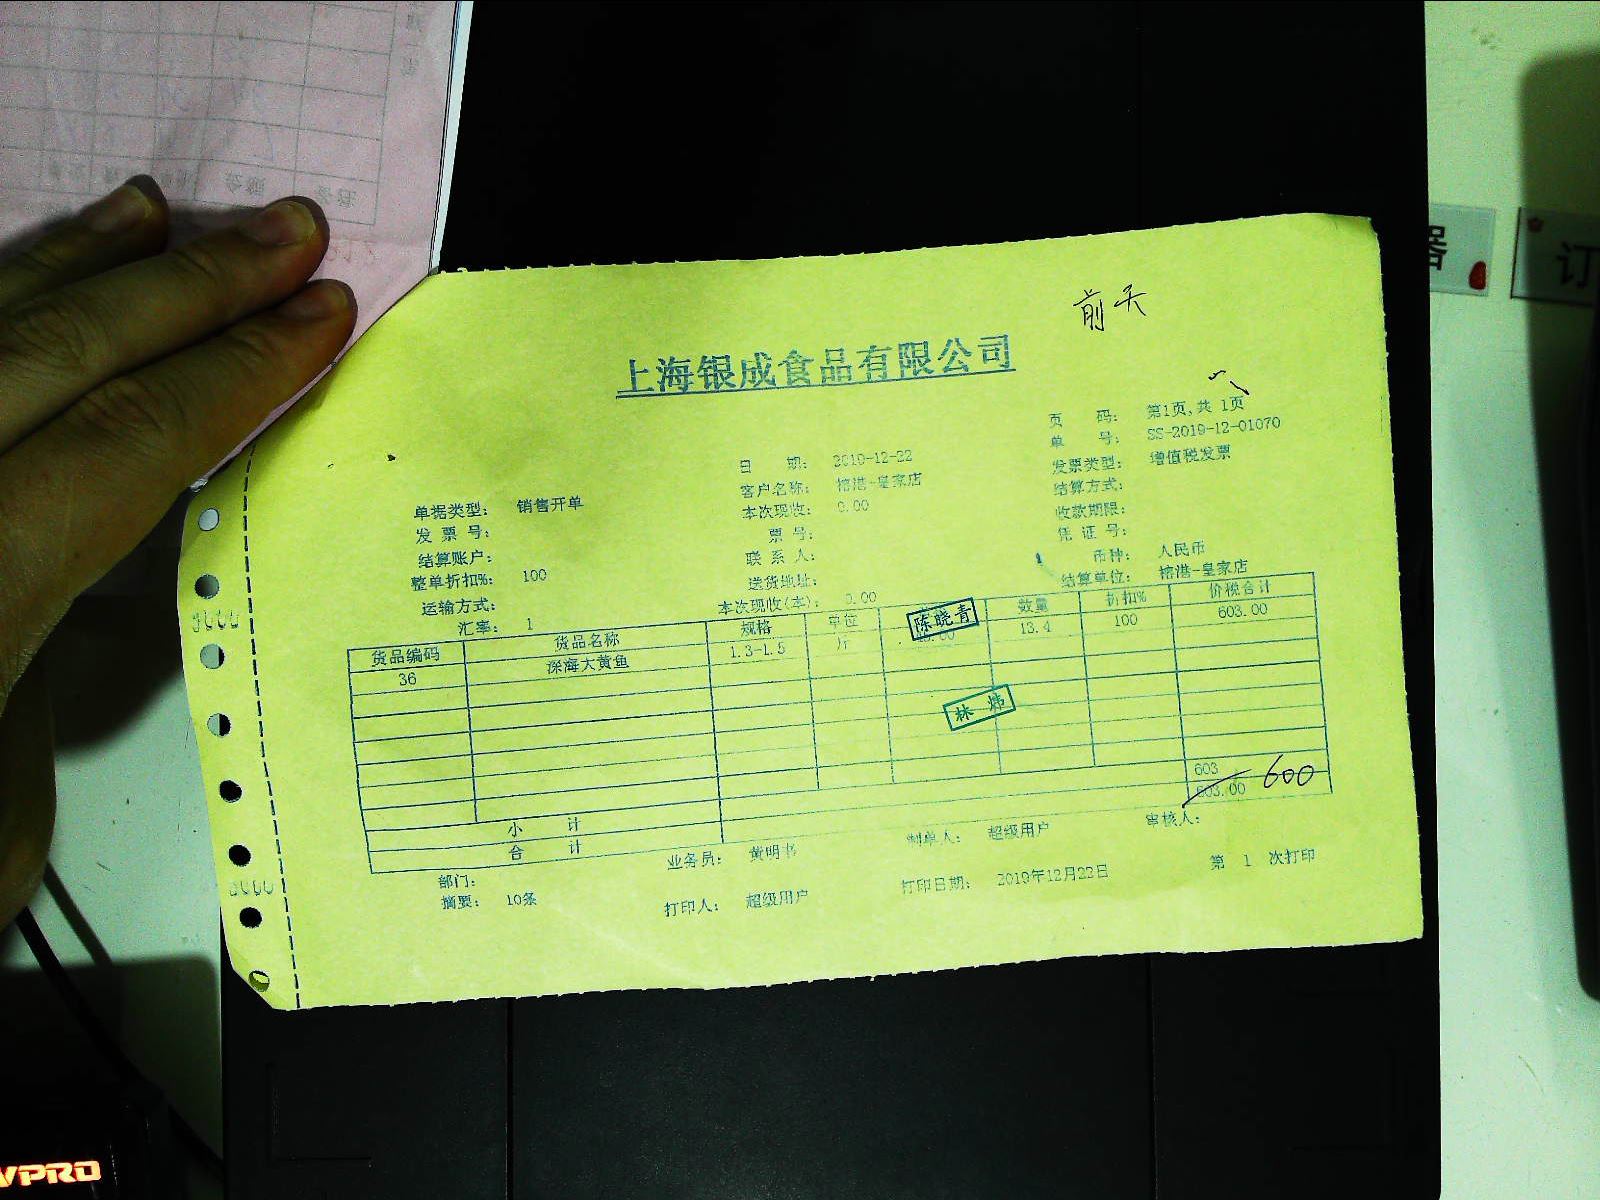 前天
上海银成食品有限公司
页 码： 第1页,共 1页
单 号： SS-2019-12-01070
日 期： 2019-12-22
发票类型： 增值税发票
客户名称： 榕港-皇家店
结算方式：
单据类型： 销售开单
本次现收： 0.00
收款期限：
发 票 号：
票 号：
凭 证 号：
结算账户：
联 系 人：
币种： 人民币
整单折扣%： 100
送货地址：
结算单位： 榕港-皇家店
运输方式：
本次现收(本)： 0.00
汇率： 1
货品编码 货品名称 规格 单位 数量 折扣% 价税合计
36 深海大黄鱼 1.3-1.5 斤 13.4 100 603.00
陈晓青
林炜
小 计 603
合 计 603.00 600
部门：
业务员： 黄明书
制单人： 超级用户
审核人：
摘要： 10条
打印人： 超级用户
打印日期： 2019年12月22日
第 1 次打印
器
订
VPRO